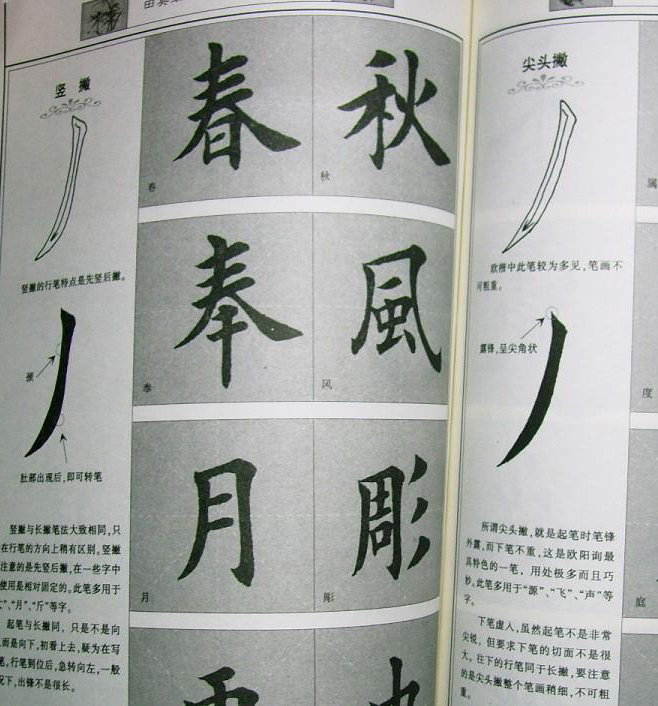 竖 撇
竖撇的行笔特点是先竖后撇。
颈
肚部出现后,即可转笔
竖撇与长撇笔法大致相同,只
在行笔的方向上稍有区别。竖撇
注意的是先竖后撇,在一些字中
使用是相对固定的。此笔多用于
”、“月”、“斤”等字。
起笔与长撇同,只是不是向
,而是向下,初看上去,疑为在写
笔。行笔到位后,急转向左,一般
况下,出锋不是很长。
春
春
秋
秋
奉
奉
風
风
月
月
彫
彫
尖头撇
欧楷中此笔较为多见,笔画不
可粗重。
露锋,呈尖角状
所谓尖头撇,就是起笔时笔锋
外露,而下笔不重,这是欧阳询最
具特色的一笔,用处极多而且巧
妙。此笔多用于“源”、“飞”、“声”等
字。
下笔虚入,虽然起笔不是非常
尖锐,但要求下笔的切面不是很
大。往下的行笔同于长撇,要注意
的是尖头撇整个笔画稍细,不可粗
重。
属
度
庭